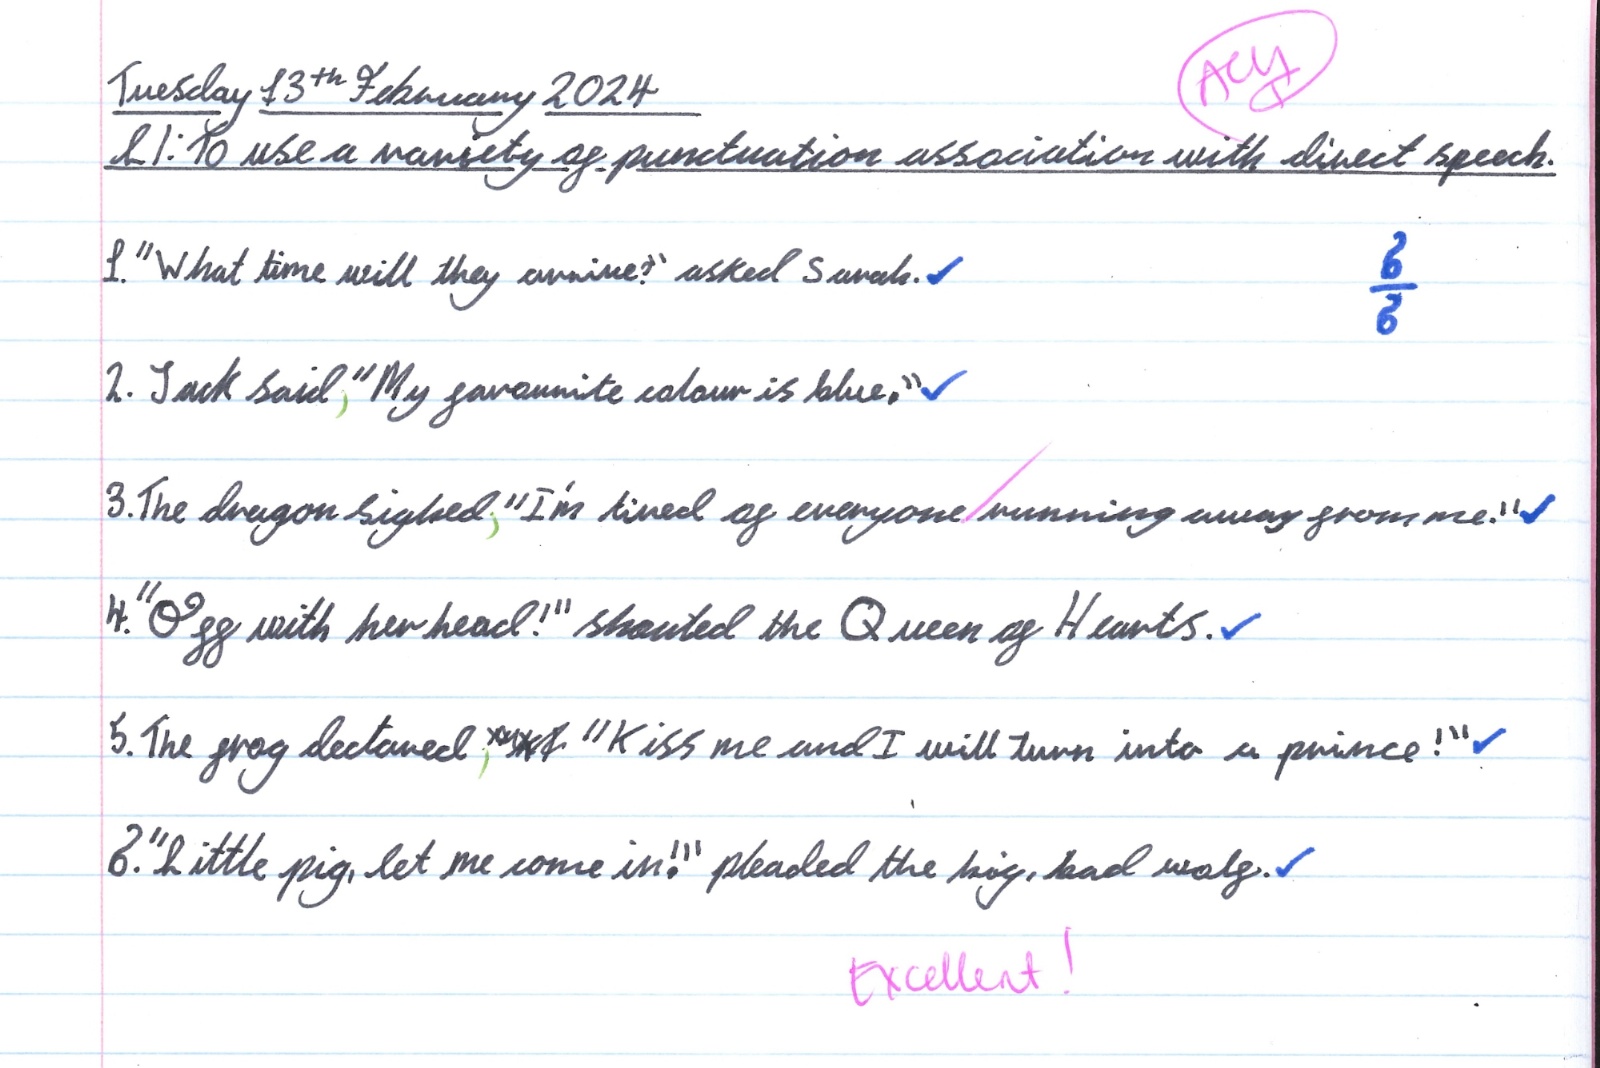 ACH
Tuesday 13th February 2024
LI: To use a variety of punctuation association with direct speech.
1. "What time will they arrive?" asked Sarah. ✓
6/6
2. Jack said, "My favourite colour is blue." ✓
3. The dragon sighed, "I'm tired of everyone / running away from me!" ✓
4. "Off with her head!" shouted the Queen of Hearts. ✓
5. The frog declared, "Kiss me and I will turn into a prince!" ✓
6. "Little pig, let me come in!" pleaded the big, bad wolf. ✓
Excellent!